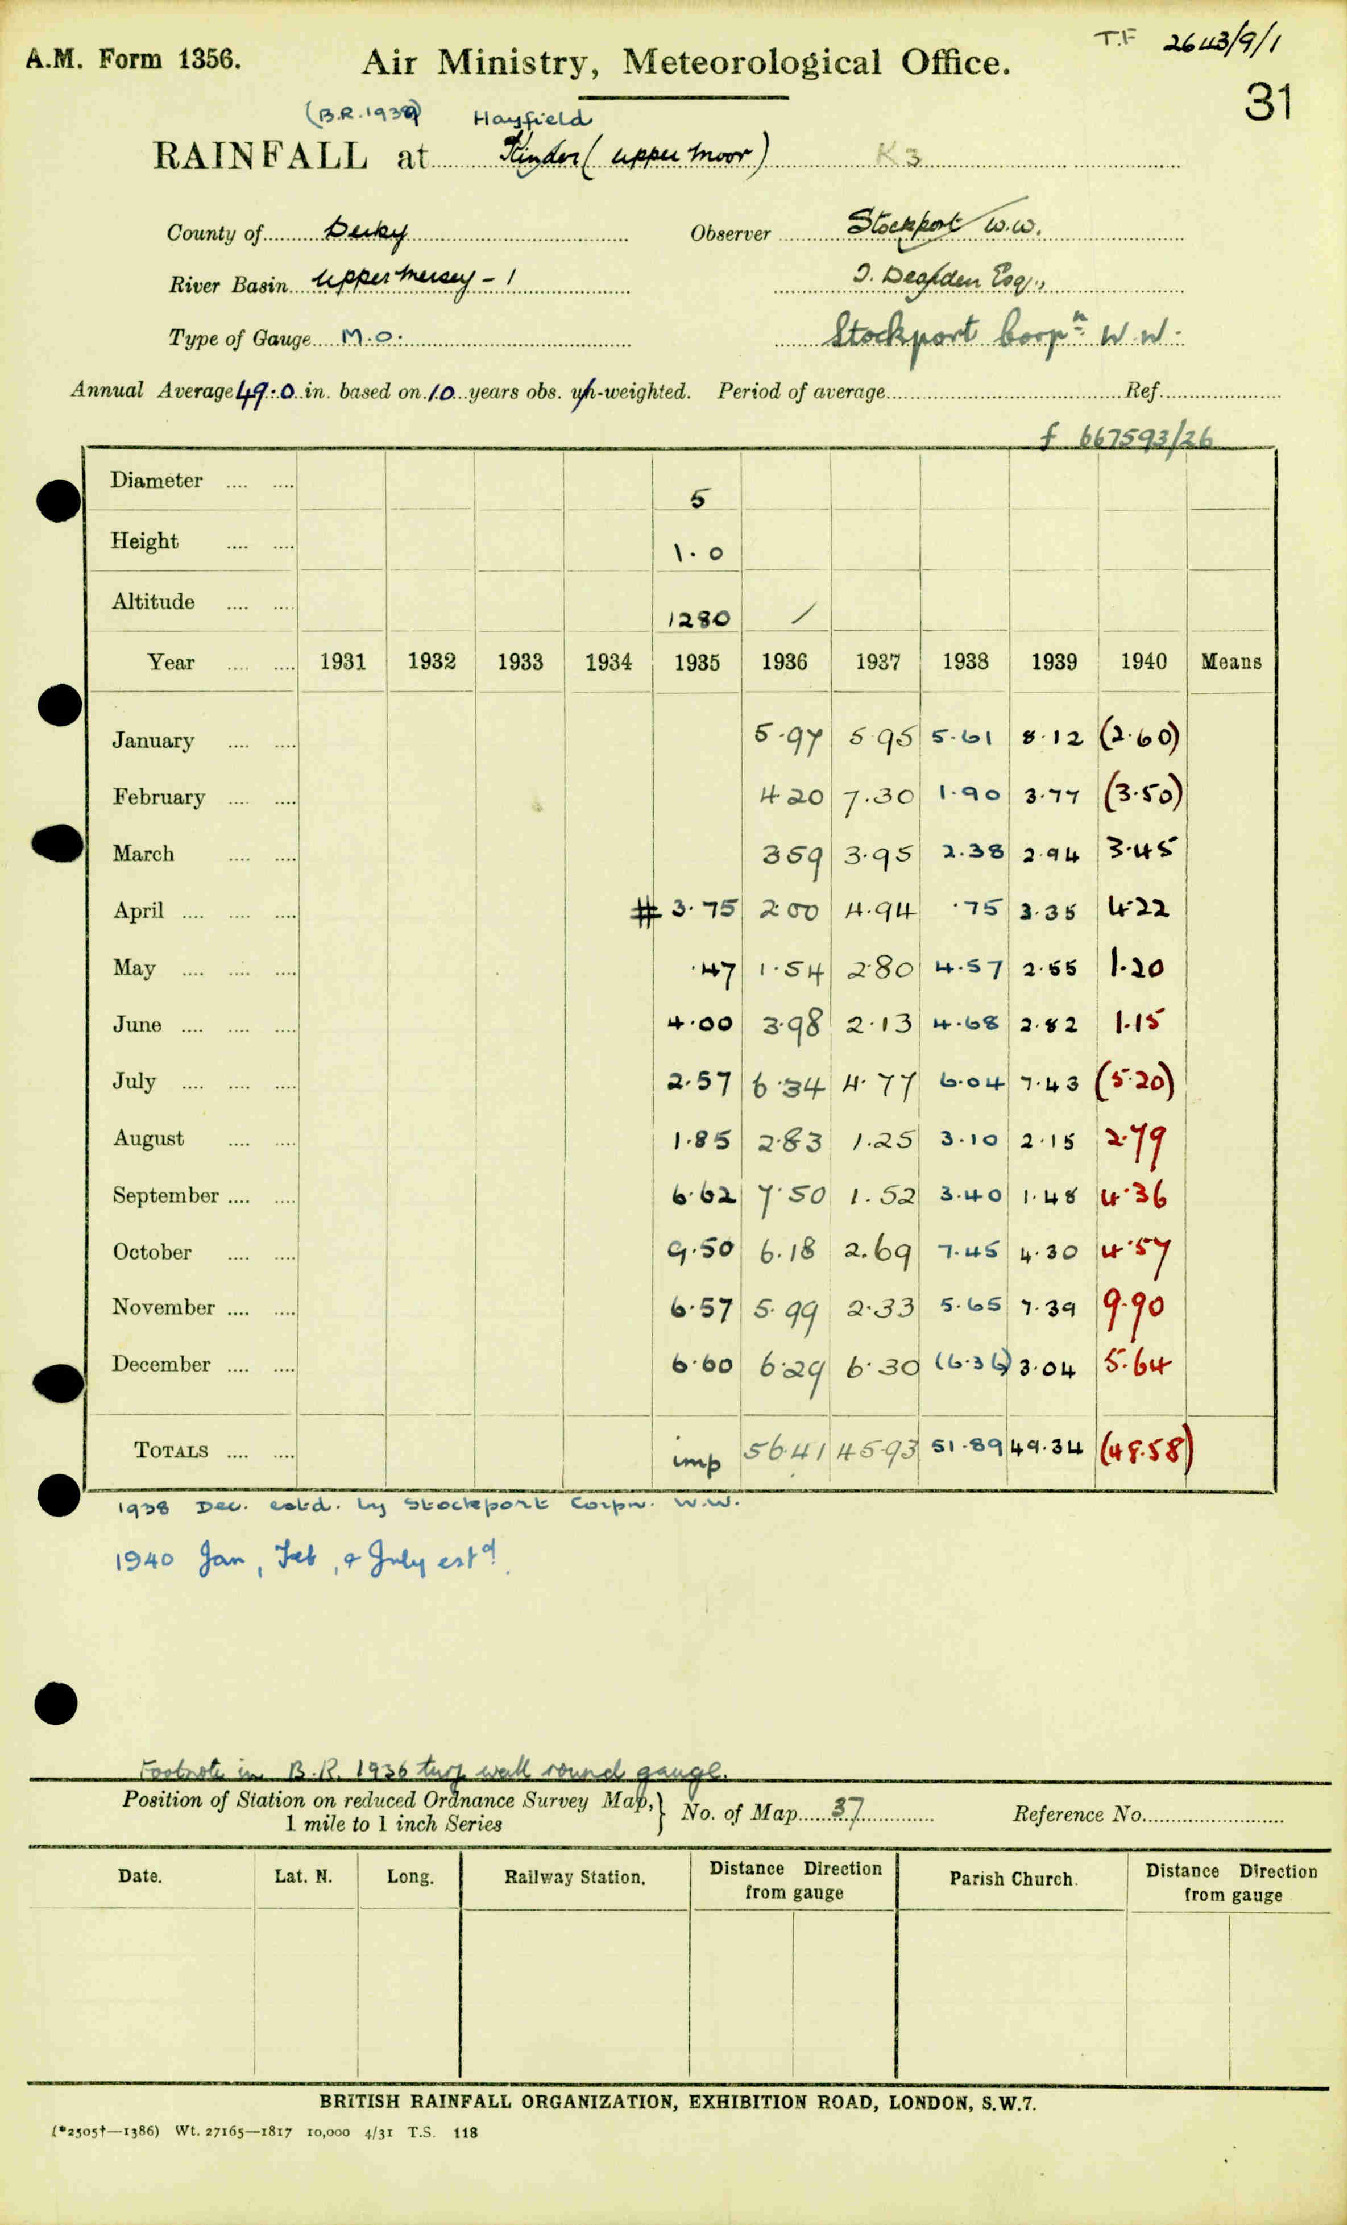 T.F 2643/9/1
A.M. Form 1356. Air Ministry, Meteorological Office.
31
(B.R. 1939) Hayfield
RAINFALL at Kinder (Upper Moor) K3
County of Derby Observer Stockport W.W.
River Basin Upper Mersey - 1 Esq.,
Type of Gauge M.O. Stockport Corpn. W.W.
Annual Average 49.0 in. based on 10 years obs. un-weighted. Period of average Ref.
f 667593/26
Diameter 5
Height 1.0
Altitude 1280 /
Year 1931 1932 1933 1934 1935 1936 1937 1938 1939 1940 Means
January 5.97 5.95 5.61 8.12 (2.60)
February 4.20 7.30 1.90 3.77 (3.50)
March 3.59 3.95 2.38 2.94 3.45
April # 3.75 2.00 4.94 .75 3.35 4.22
May .47 1.54 2.80 4.57 2.55 1.20
June 4.00 3.98 2.13 4.68 2.82 1.15
July 2.57 6.34 4.77 6.04 7.43 (5.20)
August 1.85 2.83 1.25 3.10 2.15 2.79
September 6.62 7.50 1.52 3.40 1.48 4.36
October 9.50 6.18 2.69 7.45 4.30 4.57
November 6.57 5.99 2.33 5.65 7.39 9.90
December 6.60 6.29 6.30 (6.36) 3.04 5.64
TOTALS imp 56.41 45.93 51.89 49.34 (48.58)
1938 Dec. estd. by Stockport Corpn. W.W.
1940 Jan, Feb, & July estd.
Footnote in B.R. 1936 turf wall round gauge.
Position of Station on reduced Ordnance Survey Map, } No. of Map 37 Reference No.
1 mile to 1 inch Series
Date. Lat. N. Long. Railway Station. Distance Direction from gauge Parish Church. Distance Direction from gauge
BRITISH RAINFALL ORGANIZATION, EXHIBITION ROAD, LONDON, S.W.7.
(*2505†—1386) Wt. 27165—1817 10,000 4/31 T.S. 118